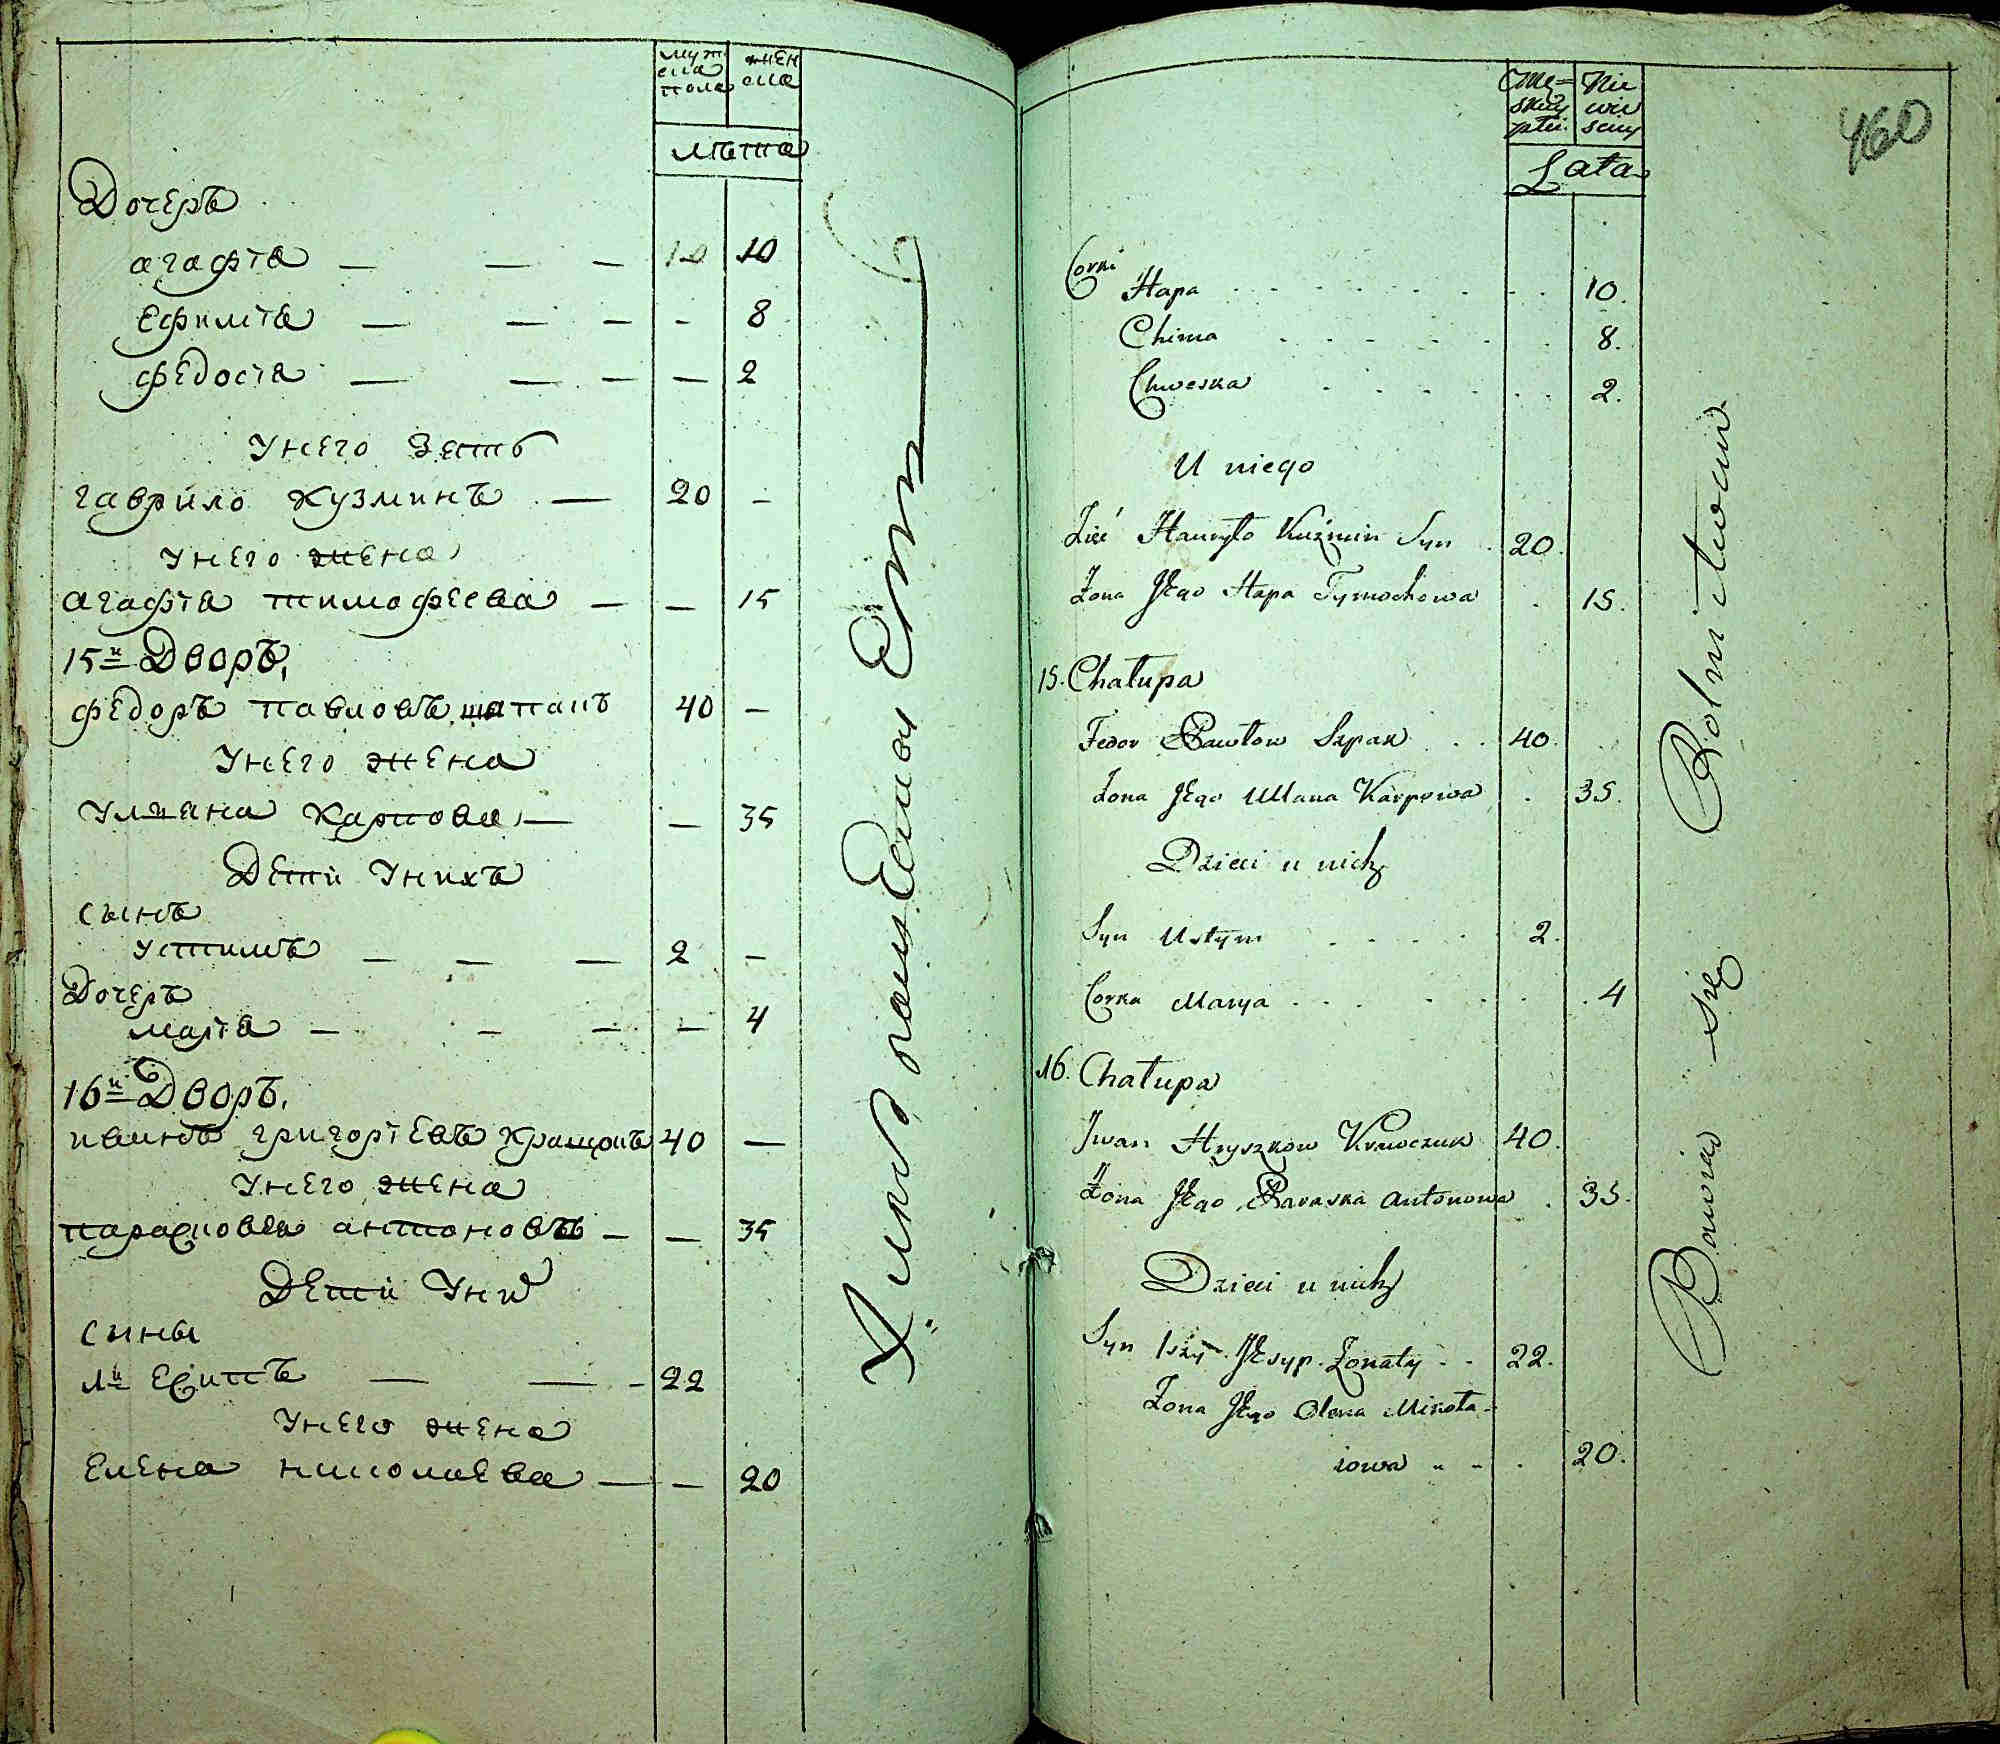 мужеска пола
женска
лѣта
Дочеръ
агафiа 10 10
ефимiа 8
федосiа 2
Унего Зеть
гаврило кузминъ 20
Унего жена
агафiа тимофеева 15
15й Дворъ,
федоръ павловъ шпакъ 40
Унего жена
Улиана карпова 35
Дети Унихъ
Сынъ
Устимъ 2
Дочеръ
марiа 4
16й Дворъ,
иванъ григорiевъ 40
Унего жена
парасковiа антонова 35
Дети Уни
Сины
1й есипъ 22
Унего жена
елена николаева 20
Męskiey płci
Niewiesciey
Lata
460
Corki
Hapa 10.
Chima 8.
Chweska 2.
U niego
Zięć Hawryło Kuźmin Syn 20.
Żona Jego Hapa Tymochowa 15.
15. Chałupa
Fedor Pawłow Szpak 40.
Żona Jego Ullana Karpowa 35.
Dzieci u nich
Syn Ustym 2.
Corka Marya 4
16. Chałupa
Jwan Hryszkow Krawczuk 40.
Żona Jego Paraska Antonowa 35.
Dzieci u nich
Syn 1szy Jesyp Żonaty 22.
Żona Jego Olena Mikoła-
iowa 20.
Bawią się Rolnictwem